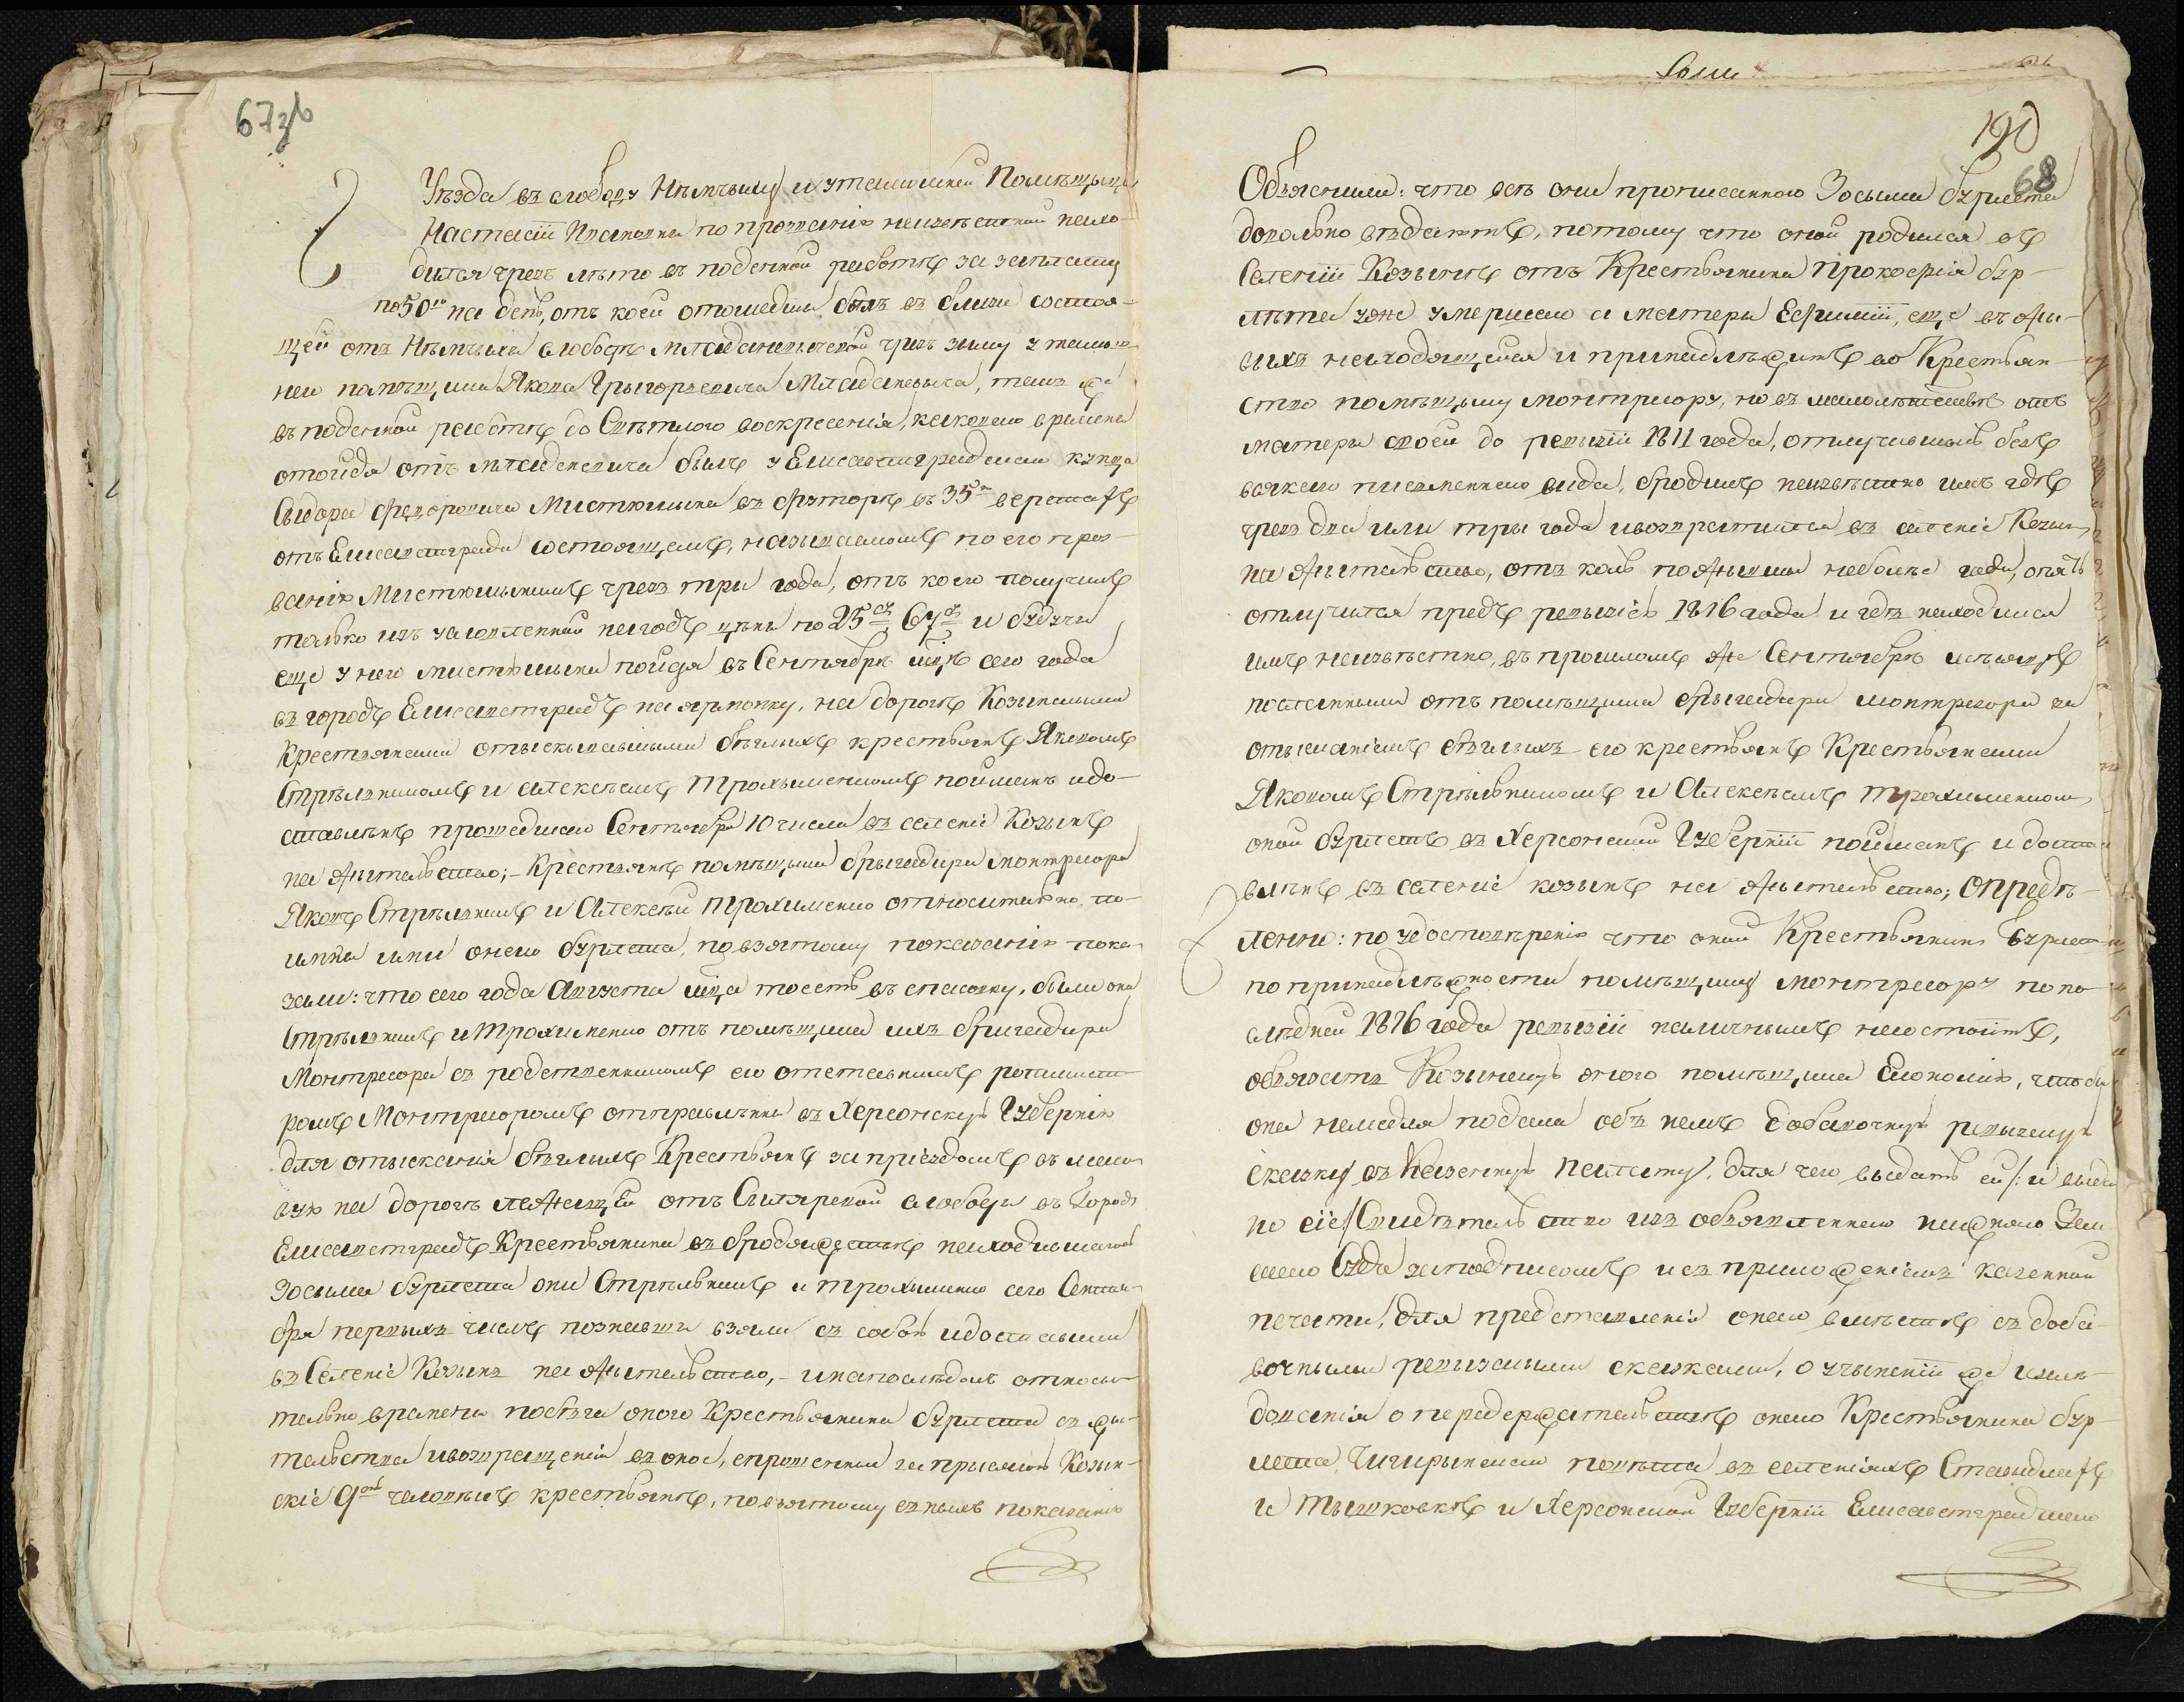 67зв
Уезда въ слободу Нѣмчыху и утамошней Помѣщыцы
Настасіи Ивановны по прозванію неизвѣстной нахо-
дился чрезъ лѣто въ поденной работѣ за заплату
по 50 ко на день, отъ коей отошедши былъ въ близи состоя-
щей отъ Нѣмчыхи слободѣ Младановычевой чрезъ зиму у тамош-
нeго помѣщика Якова Грыгорьевича Младановыча, также
въ поденной работѣ до Свѣтлого воскресенія, каковаго времени
отойдя отъ Младановича былъ у Елисаветградскаго купца
Сыдора Федоровича Мистюлына въ футорѣ въ 35ти верстахъ
отъ Елисаветграда состоящемъ, называемомъ по его проз-
ванію Мистюлынымъ чрезъ три года, отъ коего получилъ
только изъ условленной на годъ цѣны по 25 67 и будучы
еще у него Мистюлына пойдя въ Сентябрѣ мцѣ сего года
въ городъ Елисаветградъ на ярмонку, на дорогѣ Козынскими
Крестьянами отыскывавшыми бѣглыхъ крестьянъ Яковомъ
Стрѣльникомъ и Алексѣемъ Трохыменкомъ пойманъ и до-
ставлѣнъ прошедшаго Сентября 10 числа въ селеніе Козынъ
на жытельство;- Крестьянѣ помѣщыка брыгадира Монтресора
Яковъ Стрѣльникъ и Алексѣй Трохименко относительно по-
имки ими онаго бурлета, по взятому показанію пока-
зали: что сего года Августа мца то есть въ спасовку, были они
Стрѣльникъ и Трохименко отъ помѣщика ихъ бригадира
Монтресора съ родственникомъ его отставнымъ ротмист-
ромъ Монтресоромъ отправлѣны въ Херсонскую Губернію
для отысканія бѣглыхъ Крестьянъ за пріѣздомъ въ
на дорогѣ лежащей отъ слободы въ Городъ
Елисаветградъ Крестьянина въ бродяжествѣ находившагось
Зосыма бурлета они Стрѣльникъ и Трохименко сего Сентя-
бря первыхъ числъ познавшы взяли съ собою и доставыли
въ Селеніе Козынъ на жытельство,- и напослѣдокъ относи-
тельно времени побѣга оного Крестьянина бурлета съ жы-
тельства и возвращенія въ оное, спрошенныи за присягою Козын-
скіе 9ть человѣкъ крестьянъ, по взятому съ нихъ показанію
190
68
Объяснили: что всѣ они прописанного Зосыма бурлета
довольно вѣдаютъ, потому что оной родился въ
Селеніи Козынѣ отъ Крестьянина Прокофія бур-
лѣта уже умершаго а матеры Ефиміи, еще въ жи-
выхъ находящейся и принадлѣжитъ во Крестьян-
ство помѣщыку Монтресору, но въ малолѣтствѣ отъ
матеры своей до ревызіи 1811 года, отлучывшысь безъ
всякаго писменнаго вида, бродилъ неизвѣстно имъ гдѣ
чрезъ два или тры года и возвратился въ селеніе Козынъ
на жытельство, отъ коль пожывшы неболѣе года, опять
отлучился предъ ревызіею 1816 года и гдѣ находился
имъ неизвѣстно, въ прошломъ же Сентябрѣ мѣсяцѣ
посланными отъ помѣщыка брыгадира Монтресора за
отысканіемъ бѣглыхъ его крестьянъ Крестьянами
Яковомъ Стрѣльникомъ и Алексѣемъ Трохименкомъ
оной бурлетъ въ Херсонской Губерніи пойманъ и доста
влѣнъ въ селеніе козынъ на жытельство; опредѣ-
ленно: по удостовѣренію что оный Крестьянинъ Бурлет
по принадлѣжности помѣщику Монтресору по по
слѣдней 1816 года ревызіи наличнымъ несостоитъ,
обязать Козынскую оного помѣщика Економію, чтобы
она немедля подала объ немъ добавочную ревызскую
сказку въ Казенную Палату, для чего выдать ей /: и выда
но сіе :/ Свидѣтельство изъ объявленнаго нижняго Зем
скаго Суда заподписомъ и съ приложеніемъ казенной
печати, для представленія онаго вмѣстѣ съ доба-
вочными ревызскими сказками, о учыненіи же изслѣ-
дованія о передержательствѣ онаго Крестьянина бур-
лета, Чигирынскаго повѣта въ селеніяхъ
и Тышковкѣ и Херсонской Губерніи Елисаветградскаго